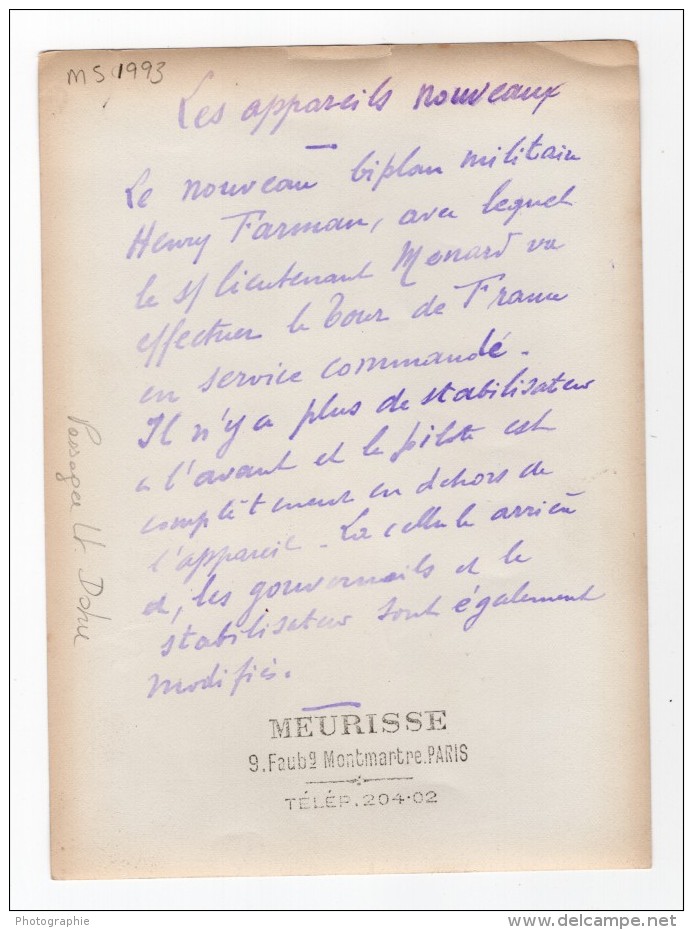 MS 1993
Les appareils nouveaux
Le nouveau biplan militaire
Henry Farman, avec lequel
le s/lieutenant Menard va
effectuer le Tour de France
en service commandé.
Il n'y a plus de stabilisateur
a l'avant et le pilote est
complètement en dehors de
l'appareil. La cellule arrière
et, les gouvernails et le
stabilisateur sont également
modifiés.
Passager Lt.
MEURISSE
9.Faubg Montmartre.PARIS
TÉLÉP.204-02
Photographie
www.delcampe.net